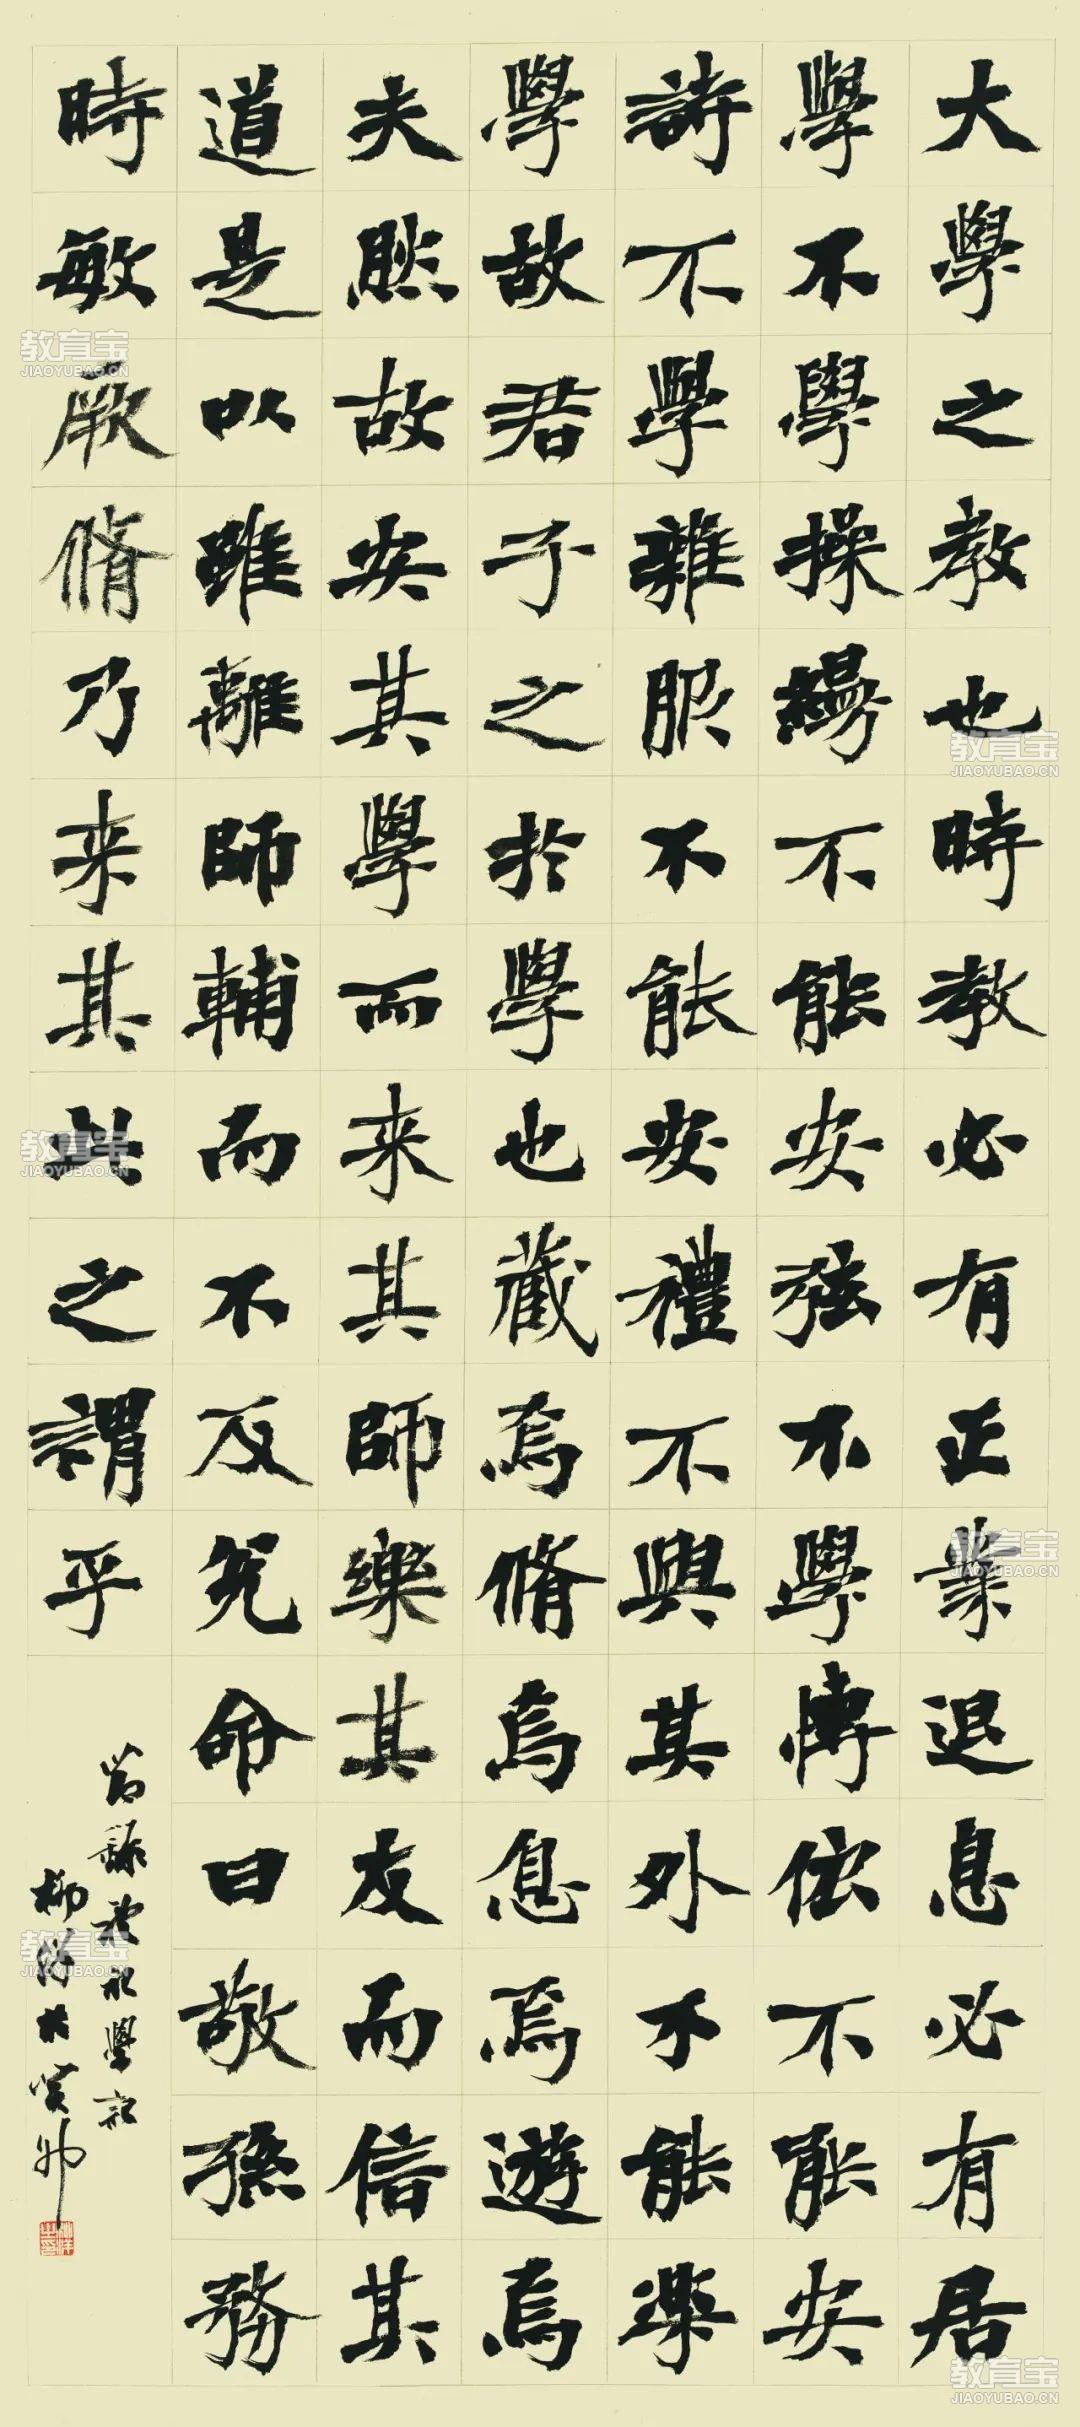 大學之教也時教必有正業退息必有居
學不學操縵不能安弦不學博依不能安
詩不學雜服不能安禮不興其外不能樂
學故君子之於學也藏焉脩焉息焉遊焉
夫然故安其學而来其師樂其友而信其
道是以雖離師輔而不反兌命曰敬孫務
時敏厥脩乃来其此之謂乎
節錄禮記學記
柳洋於癸卯
教育宝
JIAOYUBAO.CN
教育宝
JIAOYUBAO.CN
教育宝
JIAOYUBAO.CN
教育宝
JIAOYUBAO.CN
教育宝
JIAOYUBAO.CN
教育宝
JIAOYUBAO.CN